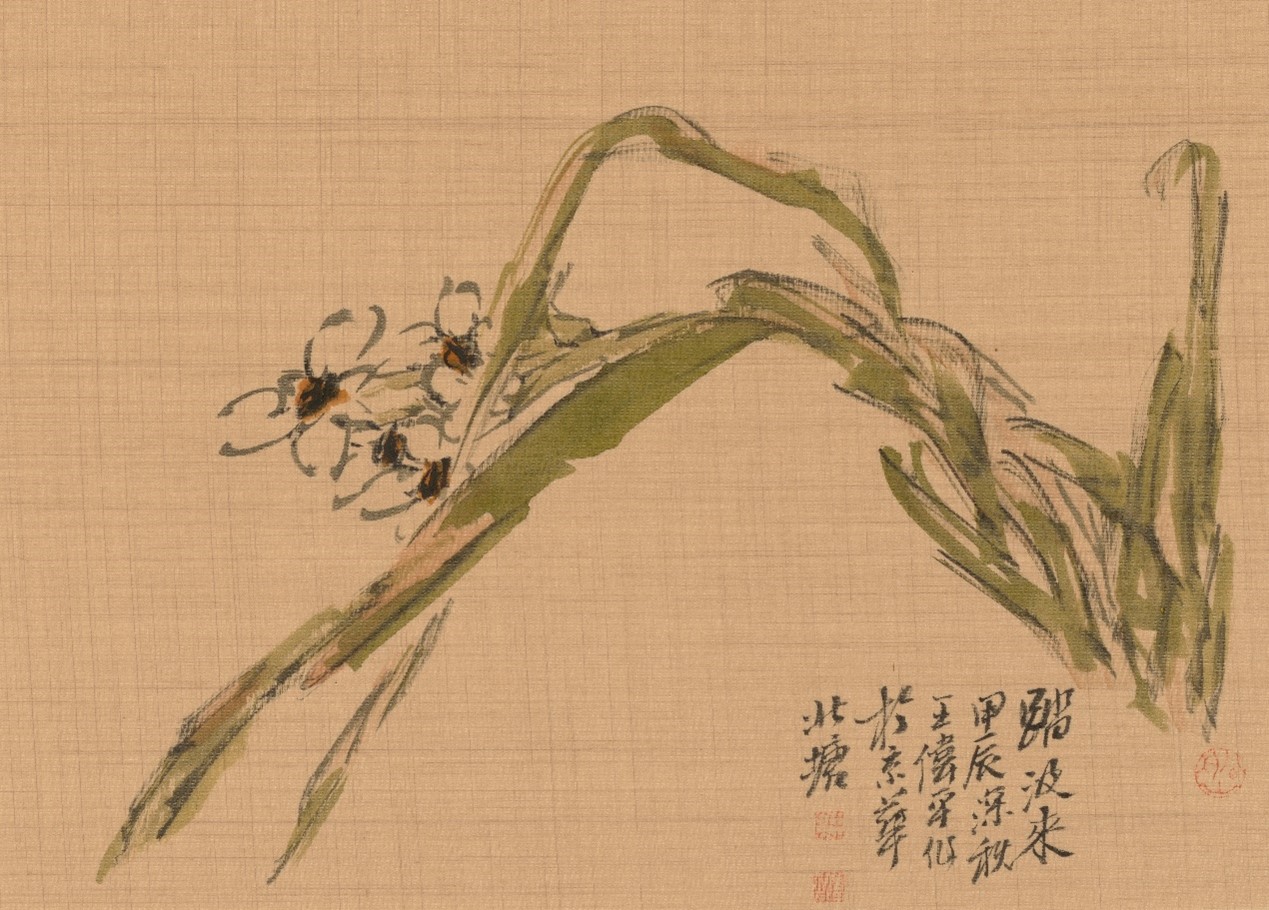 踏波来
甲辰深秋
王偉平作
於京華
北塘